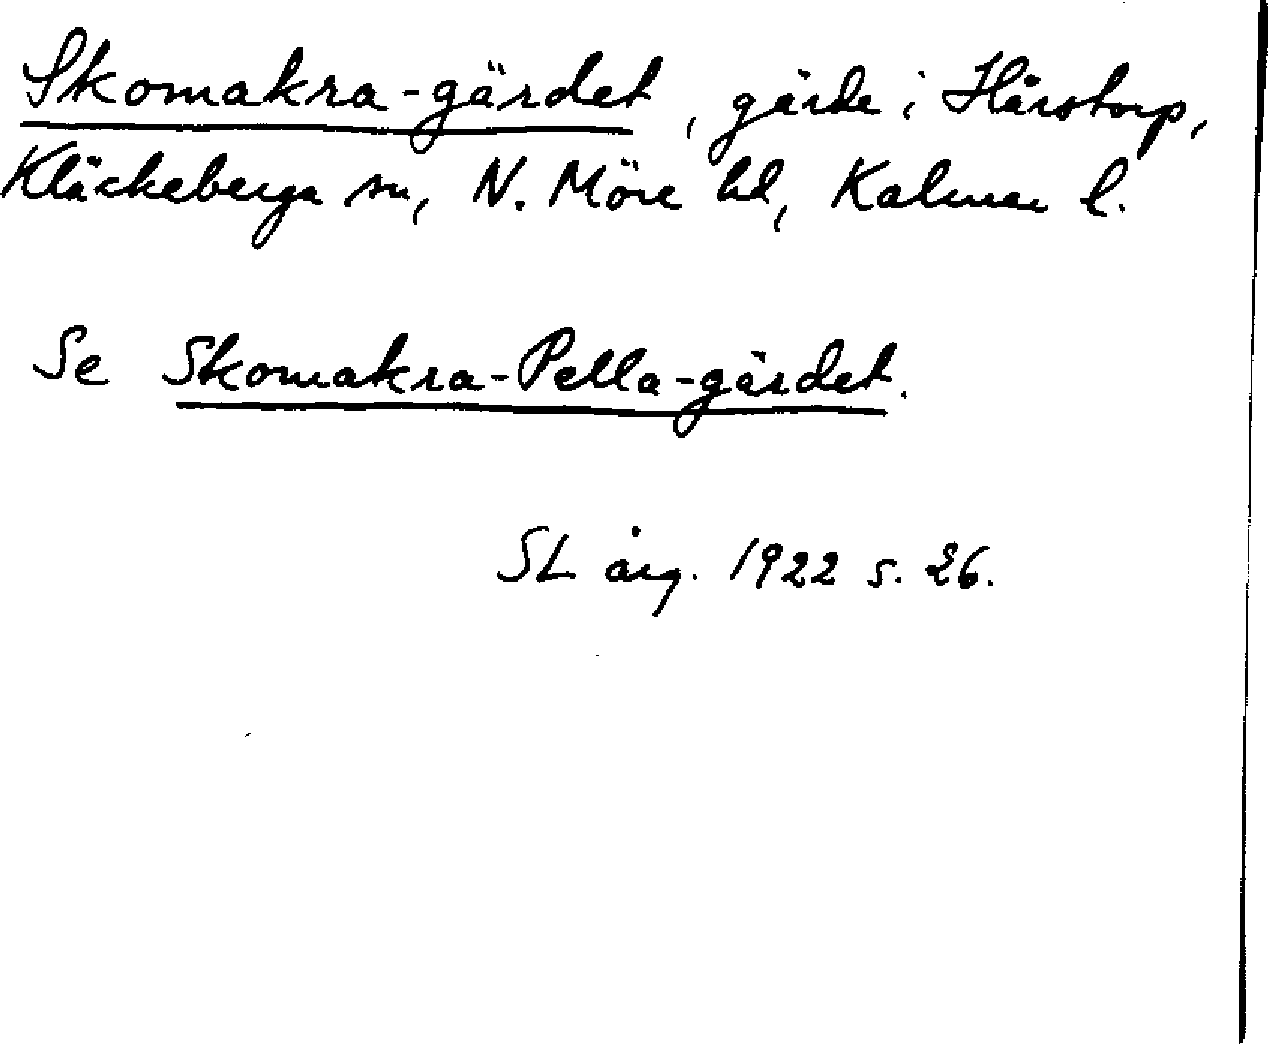 Skomakra-gärdet, gärde i Hårstorp,
Kläckeberga sn, N. Möre hd, Kalmar l.
Se Skomakra-Pella-gärdet.
SL årg. 1922 s. 26.